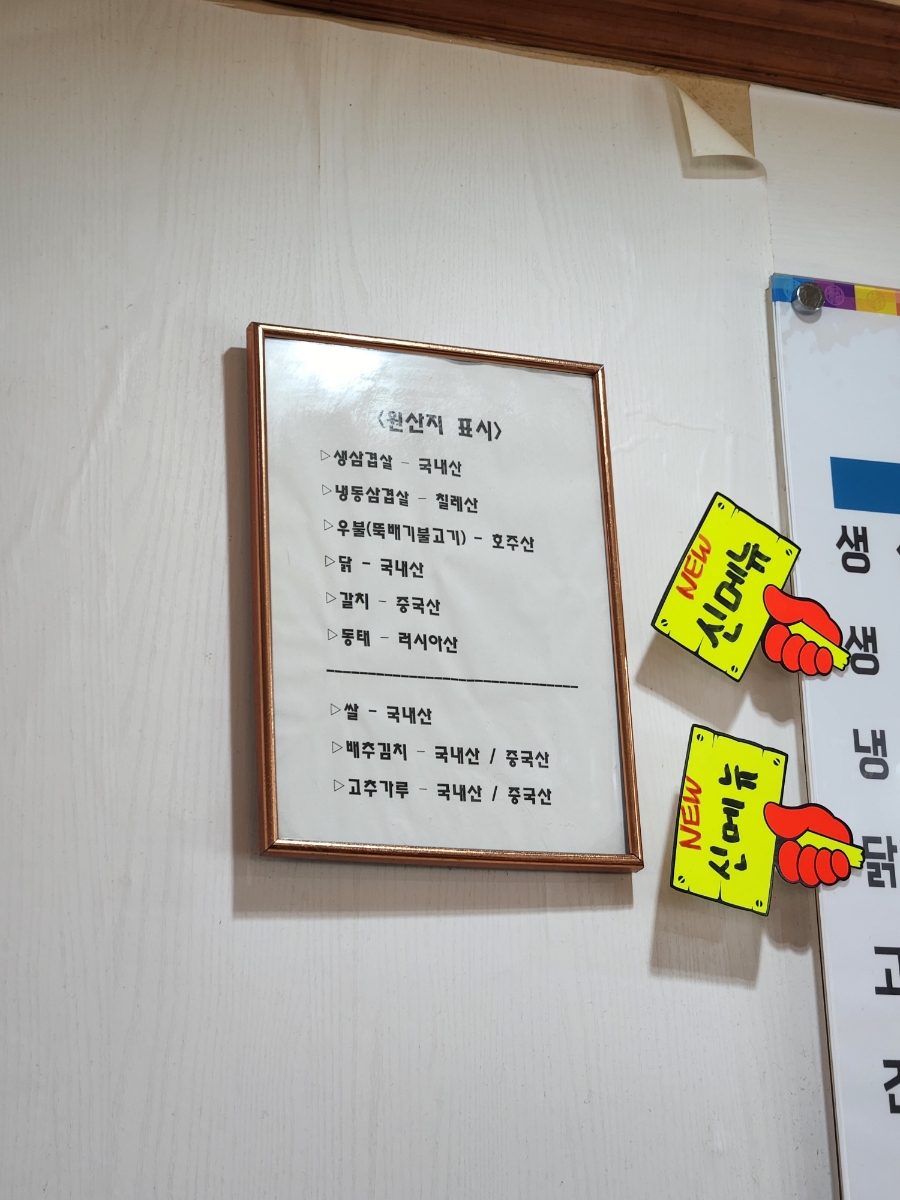 <원산지 표시>
▷생삼겹살 - 국내산
▷냉동삼겹살 - 칠레산
▷우불(뚝배기불고기) - 호주산
▷닭 - 국내산
▷갈치 - 중국산
▷동태 - 러시아산
▷쌀 - 국내산
▷배추김치 - 국내산 / 중국산
▷고추가루 - 국내산 / 중국산
NEW
신메뉴
NEW
신메뉴
생
생
냉
닭
고